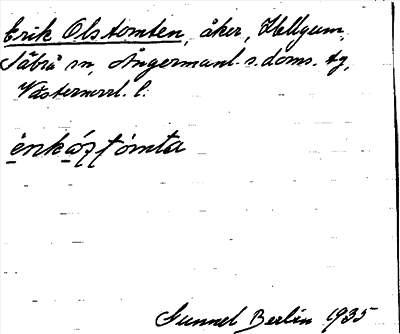 Erik Olstomten, åker, Hellgum,
Säbrå sn, Ångermanl. s. doms. tg,
Västernorrl. l.
Gunnel Berlin 1935